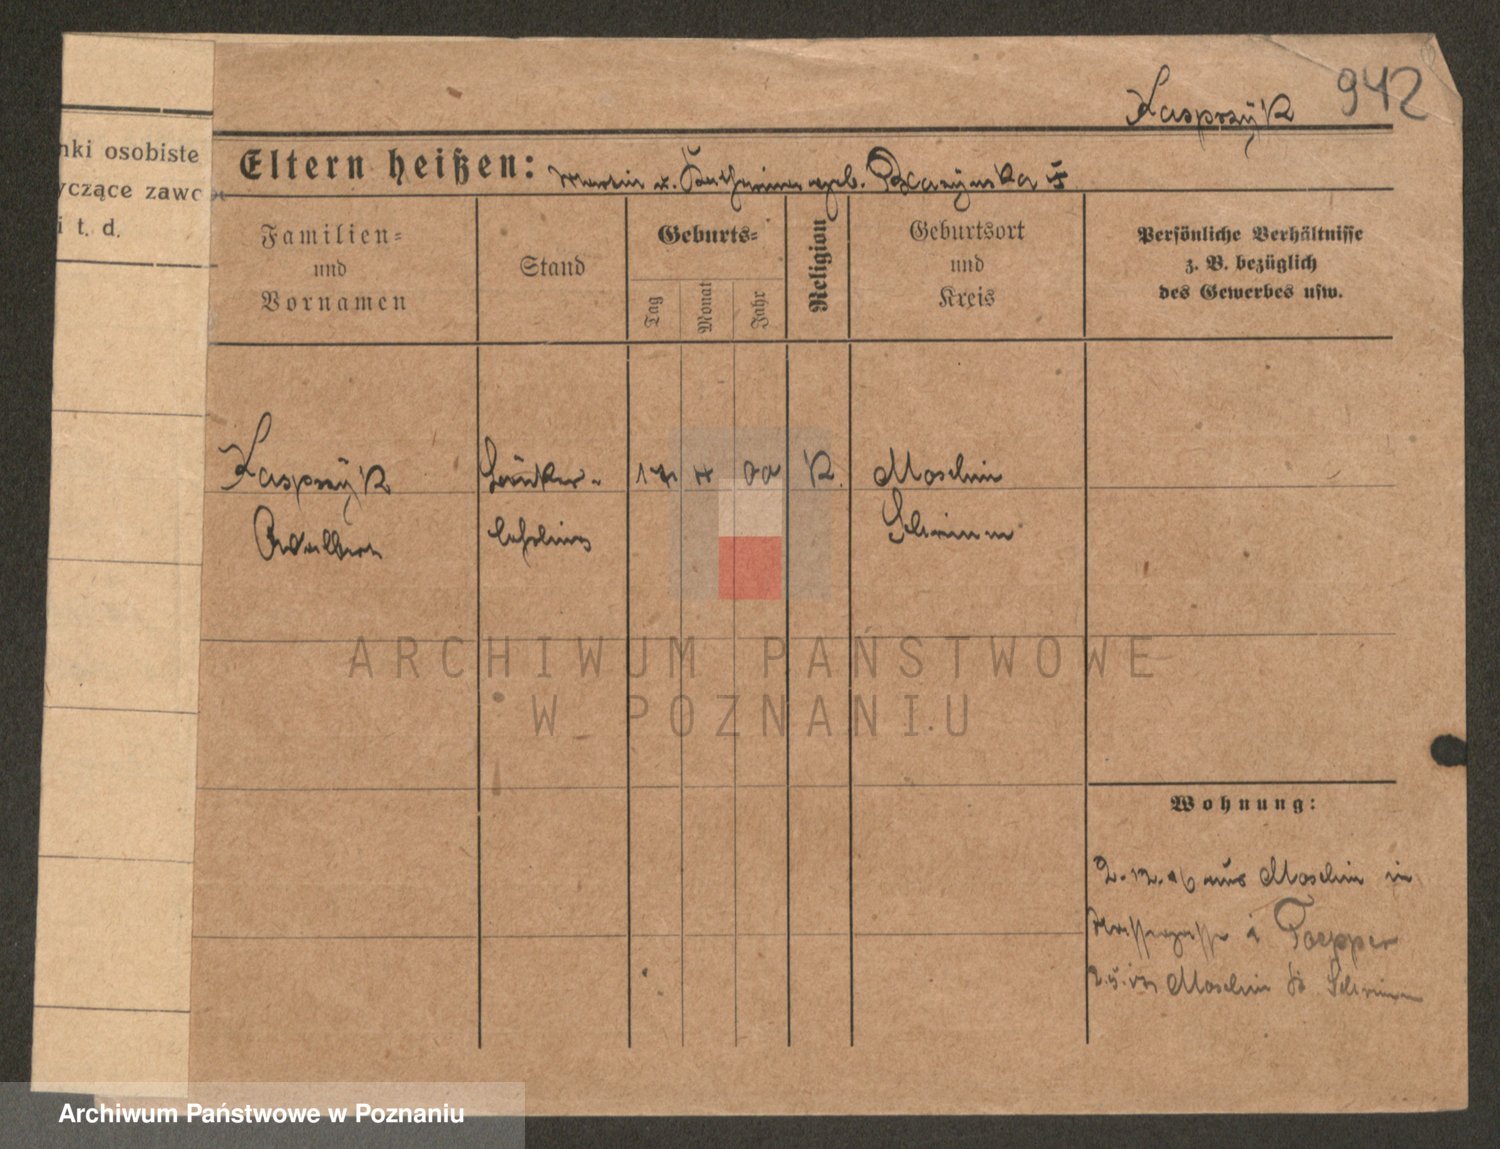 942
Kasprzyk
nki osobiste
yczące zawo
i t. d.
Eltern heißen: Martin u. Katharina geb.
Familien-
und
Vornamen
Stand
Geburts-
Tag
Monat
Jahr
Religion
Geburtsort
und
Kreis
Persönliche Verhältnisse
z. B. bezüglich
des Gewerbes usw.
Kasprzyk
Bäcker-
17 4 00
K.
Moschin
Adalbert
lehrling
Schrimm
Wohnung:
2.12.16 aus Moschin in
Toepper
Moschin Schrimm
ARCHIWUM PAŃSTWOWE
W POZNANIU
Archiwum Państwowe w Poznaniu